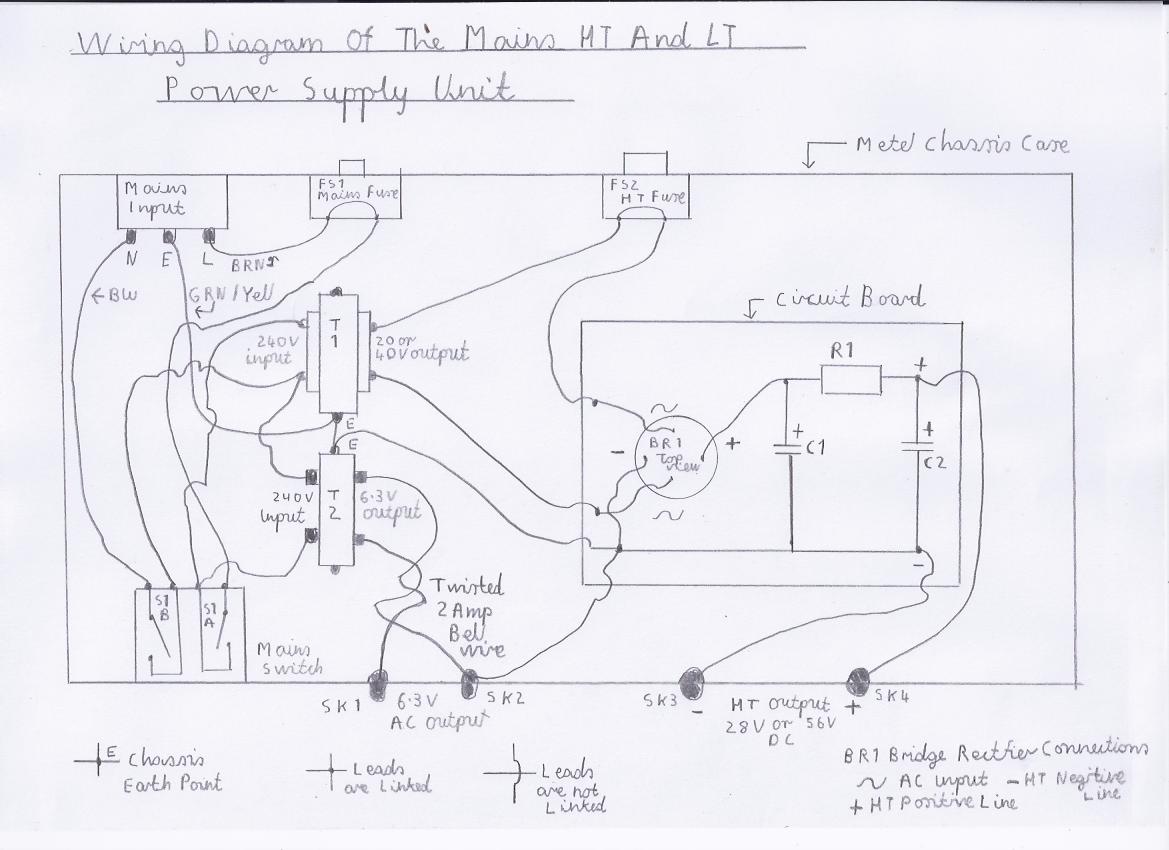 Wiring Diagram Of The Mains HT And LT
Power Supply Unit
Metel Chassis Case
Mains
Input
FS1
Mains Fuse
FS2
HT Fuse
N E L
BRN
←BW
GRN/Yell
Circuit Board
240V
input
T
1
20 or
40V output
R1
+
E
E
~
BR1
Top
View
-
+
~
+
C1
+
C2
-
240V
Input
T
2
6.3V
output
Twisted
2 Amp
Bell
wire
S1
B
S1
A
Mains
Switch
SK1
6.3V
AC output
SK2
SK3
-
HT output
28V or 56V
DC
+
SK4
E Chassis
Earth Point
Leads
are Linked
Leads
are not
Linked
BR1 Bridge Rectfier Connections
~ AC input - HT Negitive
Line
+ HT Positive Line